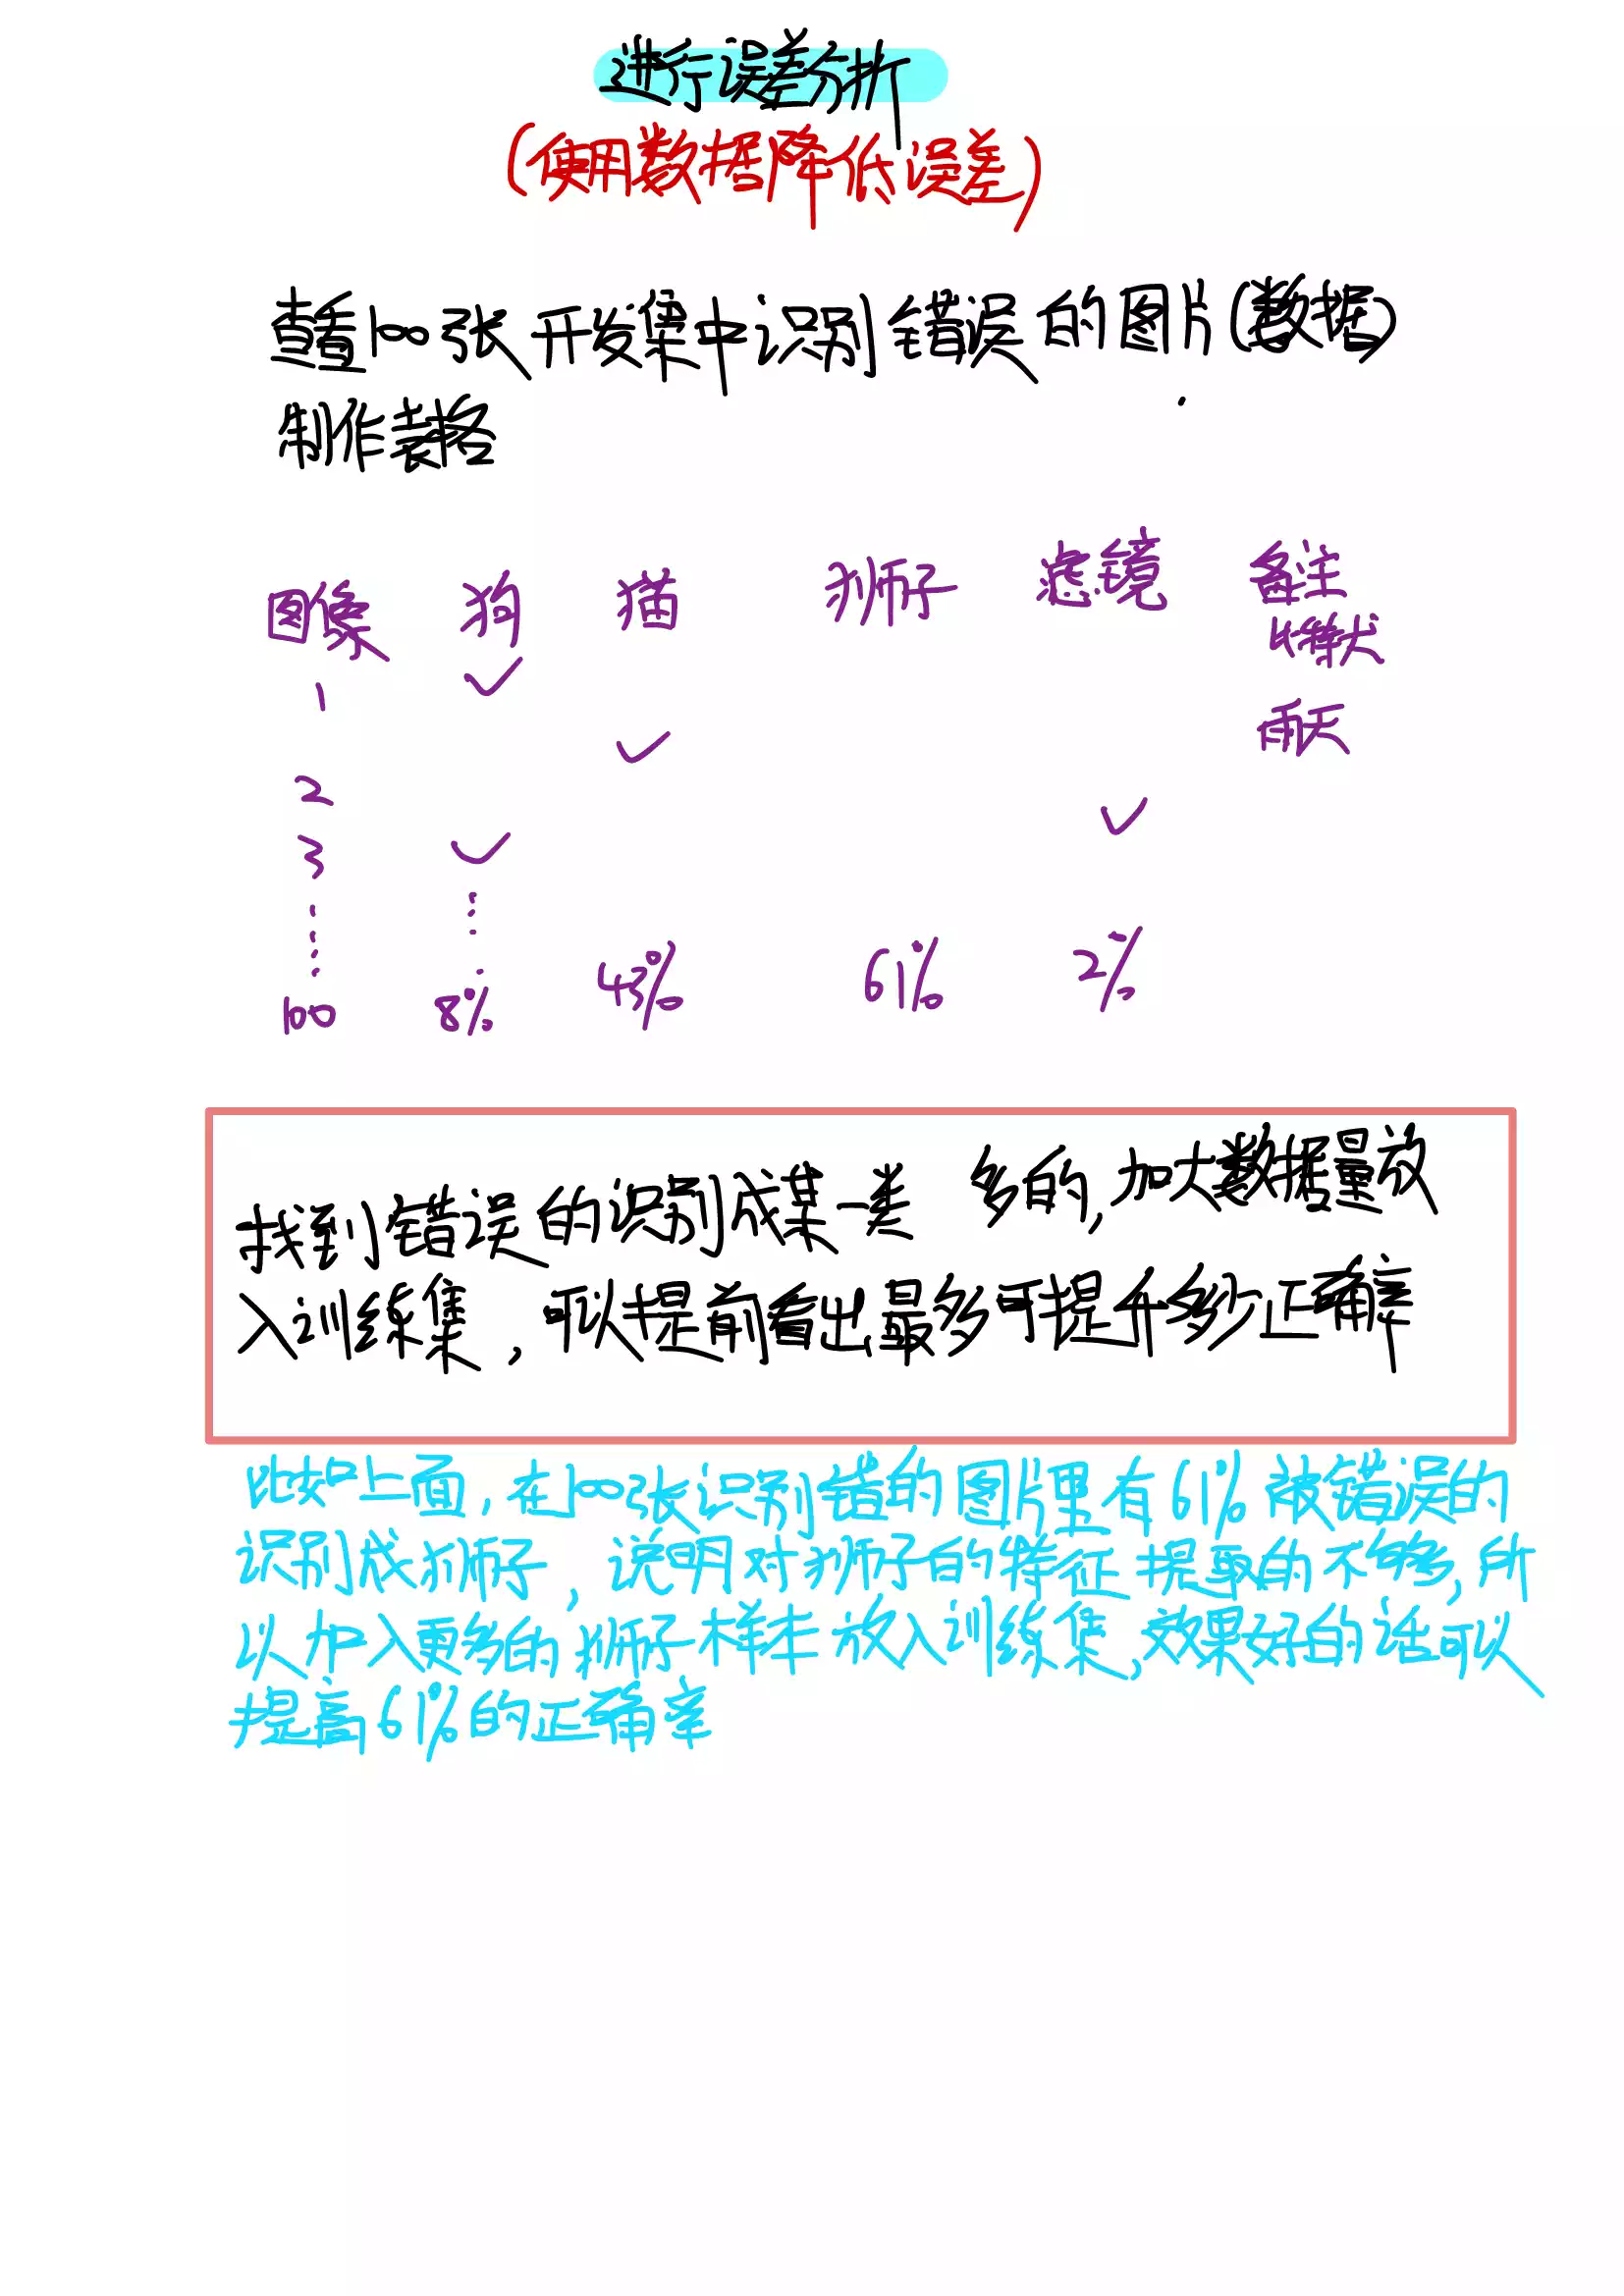 进行误差分析
(使用数据降低误差)
查看100张开发集中识别错误的图片(数据)
制作表格
图像 狗 猫 狮子 滤镜 备注
比特犬
1 ✓
雨天
✓
2
✓
3 ✓
⋮ ⋮
100 8% 43% 61% 2%
找到错误的识别成某一类 多的,加大数据量放
入训练集,可以提前看出最多可提升多少正确率
比如上面,在100张识别错的图片里有61%被错误的
识别成狮子,说明对狮子的特征提取的不够,所
以加入更多的狮子样本放入训练集,效果好的话可以
提高61%的正确率